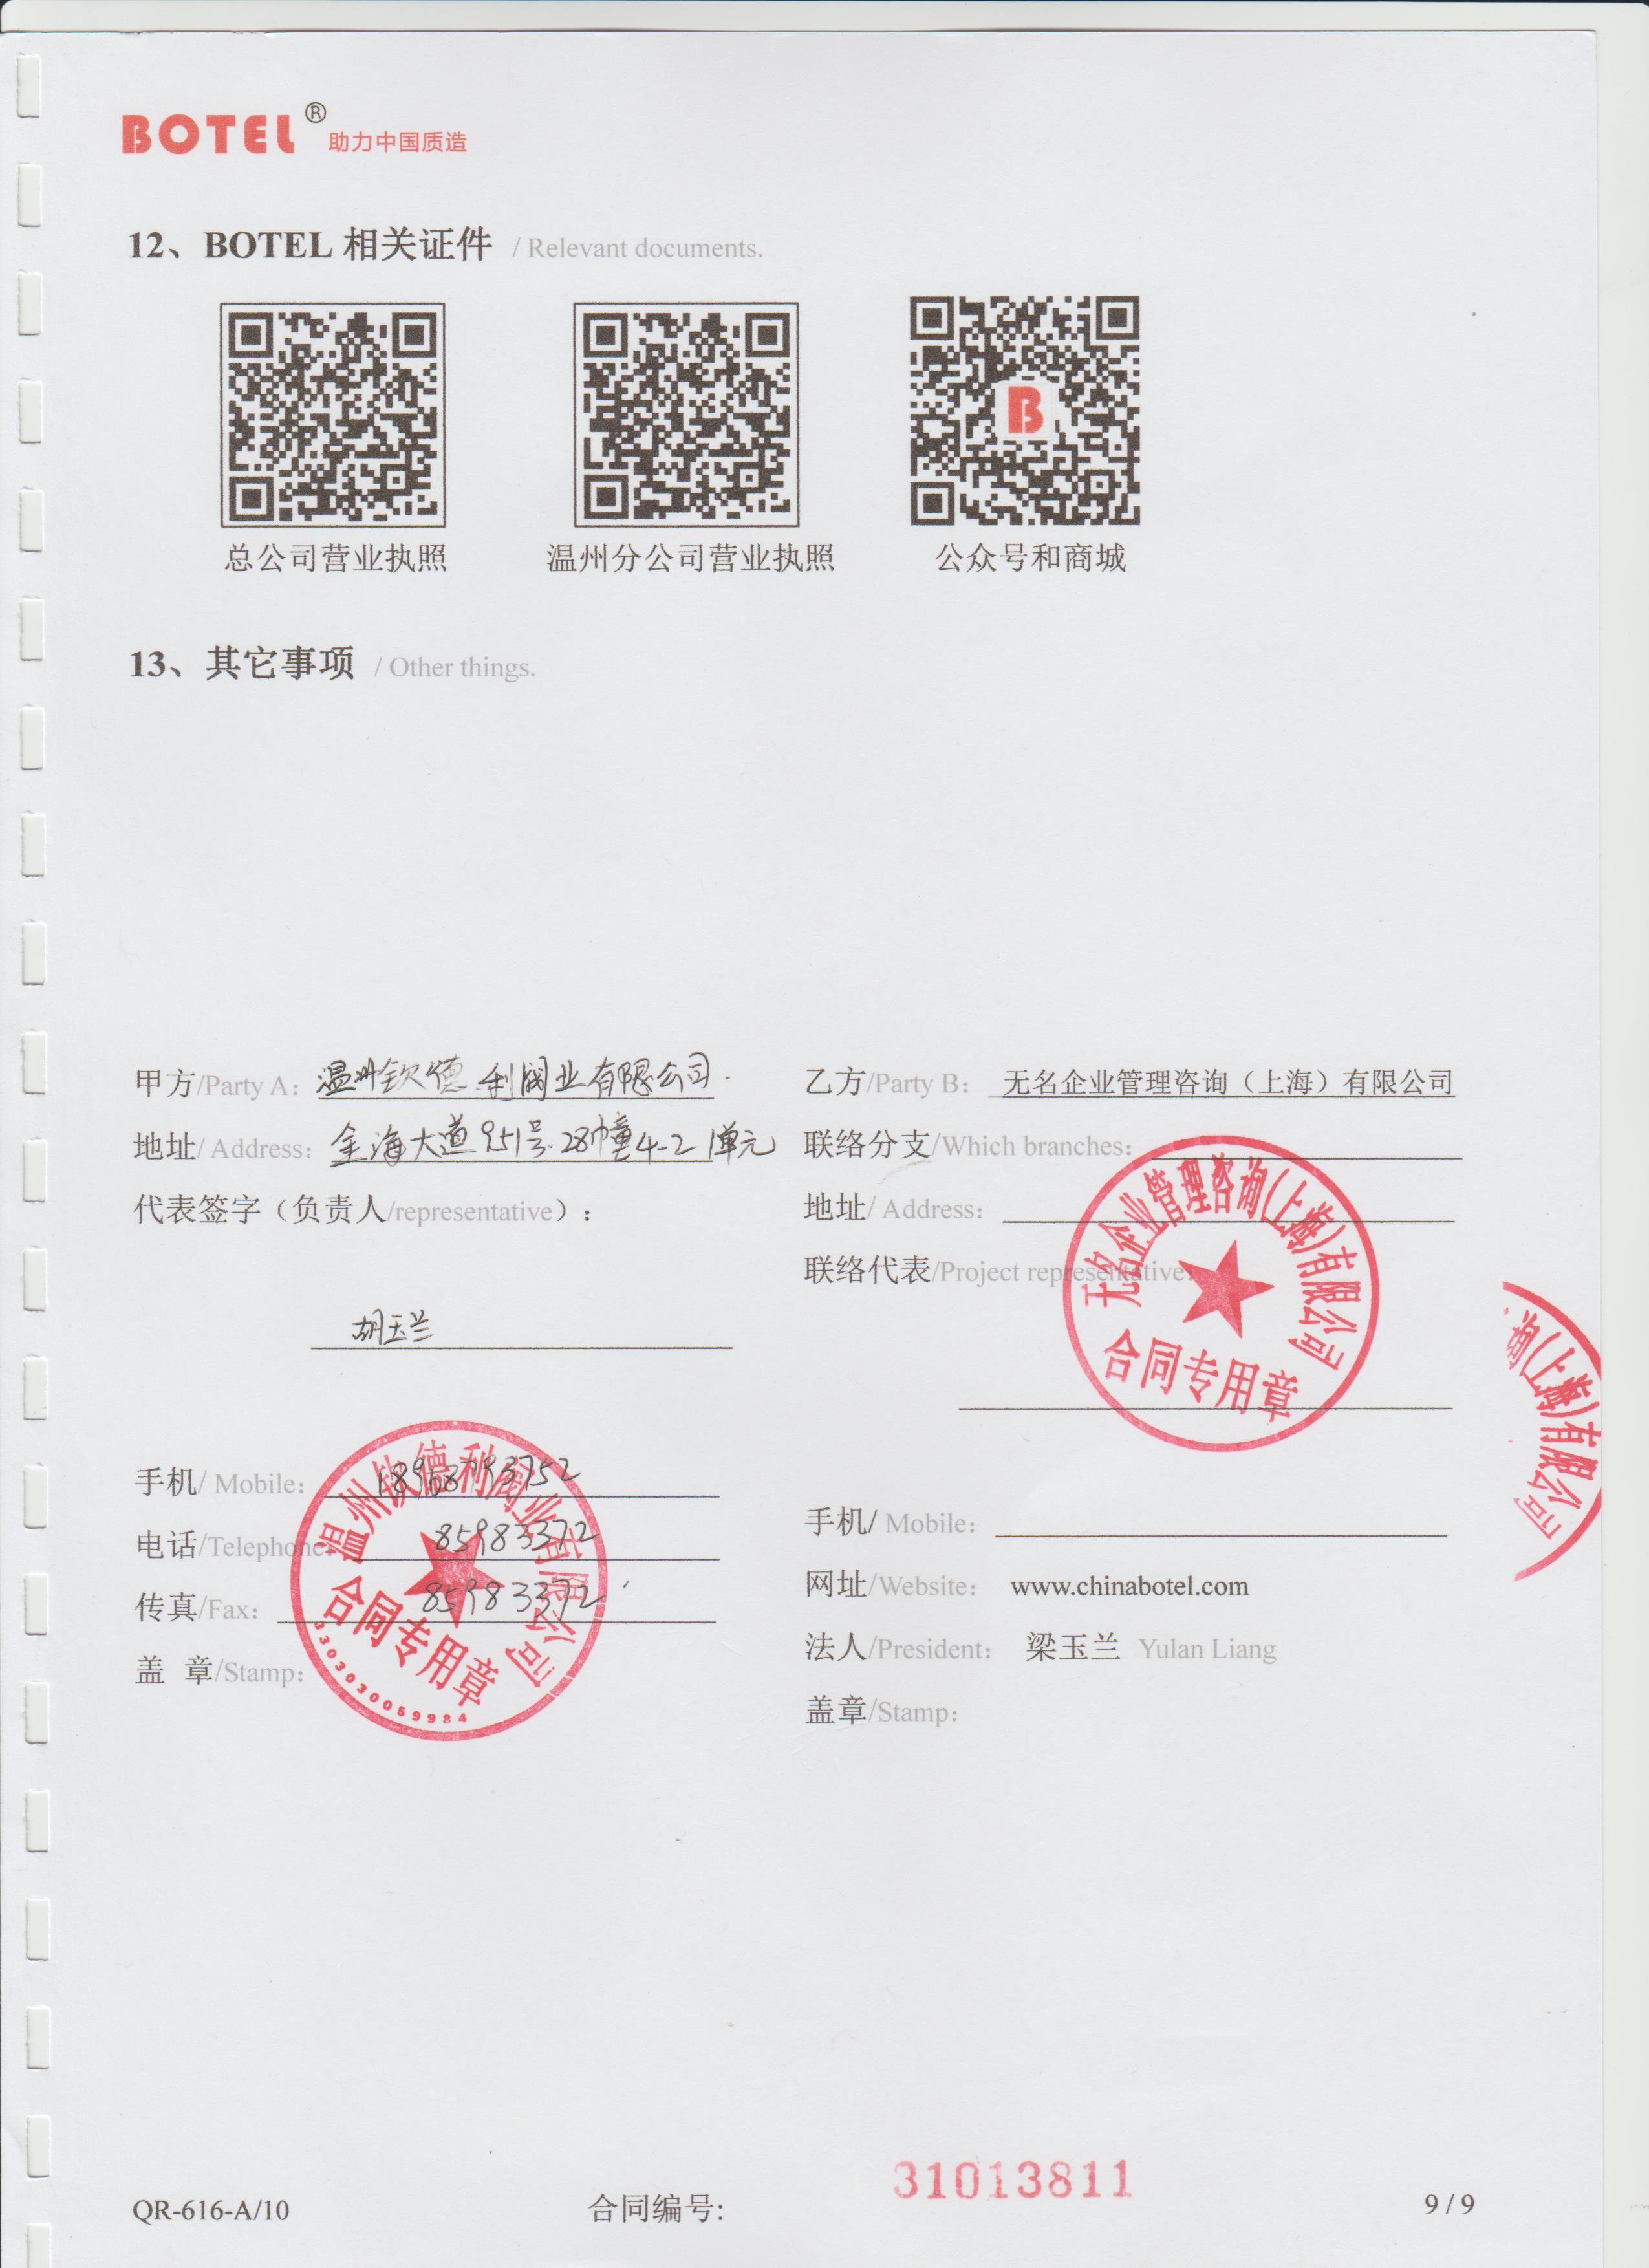 BOTEL® 助力中国质造
12、BOTEL 相关证件 / Relevant documents.
总公司营业执照 温州分公司营业执照 公众号和商城
13、其它事项 / Other things.
甲方/Party A: 温州钦德利阀业有限公司.
地址/ Address: 金海大道951号28幢4-2单元
代表签字（负责人/representative）:
胡玉兰
手机/ Mobile: 18968795752
电话/Telephone: 85983372
传真/Fax: 85983372
盖 章/Stamp:
温州钦德利阀业有限公司
合同专用章
3303030059984
乙方/Party B: 无名企业管理咨询（上海）有限公司
联络分支/Which branches:
地址/ Address:
联络代表/Project representative:
无名企业管理咨询(上海)有限公司
合同专用章
询(上海)有限公司
手机/ Mobile:
网址/Website: www.chinabotel.com
法人/President: 梁玉兰 Yulan Liang
盖章/Stamp:
QR-616-A/10 合同编号: 31013811 9 / 9